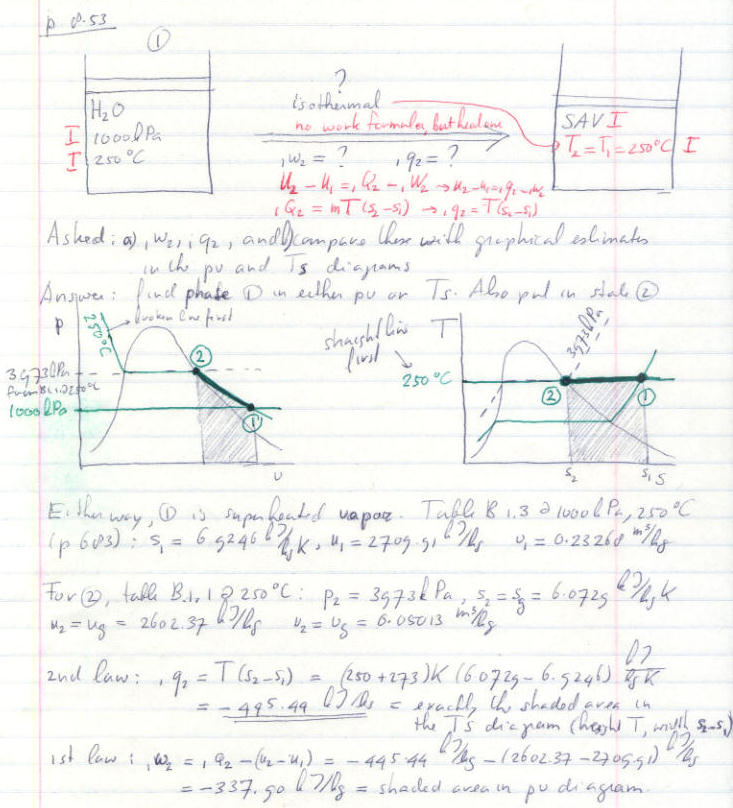 p 8.53
①
H₂O
I 1000 kPa
I 250 °C
?
isothermal
no work formula, but heat one
₁w₂ = ? ₁q₂ = ?
U₂ − U₁ = ₁Q₂ − ₁W₂ → u₂ − u₁ = ₁q₂ − ₁w₂
₁Q₂ = mT(s₂ − s₁) → ₁q₂ = T(s₂ − s₁)
SAV I
T₂ = T₁ = 250 °C I
Asked: a) ₁w₂, ₁q₂, and b) compare these with graphical estimates
in the pv and Ts diagrams
Answer: find phase ① in either pv or Ts. Also put in state ②
p
250 °C
broken line first
②
3973 kPa
from B.1.1 @ 250 °C
1000 kPa
①
v
straight line
first
T
3973 kPa
250 °C
②
①
s₂
s₁
s
Either way, ① is superheated vapor. Table B 1.3 @ 1000 kPa, 250 °C
(p 683): s₁ = 6.9246 kJ/kg K, u₁ = 2709.91 kJ/kg v₁ = 0.23268 m³/kg
For ②, table B.1.1 @ 250 °C: p₂ = 3973 kPa, s₂ = sg = 6.0729 kJ/kg K
u₂ = ug = 2602.37 kJ/kg v₂ = vg = 0.05013 m³/kg
2nd law: ₁q₂ = T(s₂ − s₁) = (250 + 273)K (6.0729 − 6.9246) kJ/kg K
= −445.44 kJ/kg = exactly the shaded area in
the TS diagram (height T, width s₂−s₁)
1st law: ₁w₂ = ₁q₂ − (u₂ − u₁) = −445.44 kJ/kg − (2602.37 − 2709.91) kJ/kg
= −337.90 kJ/kg = shaded area in pv diagram.